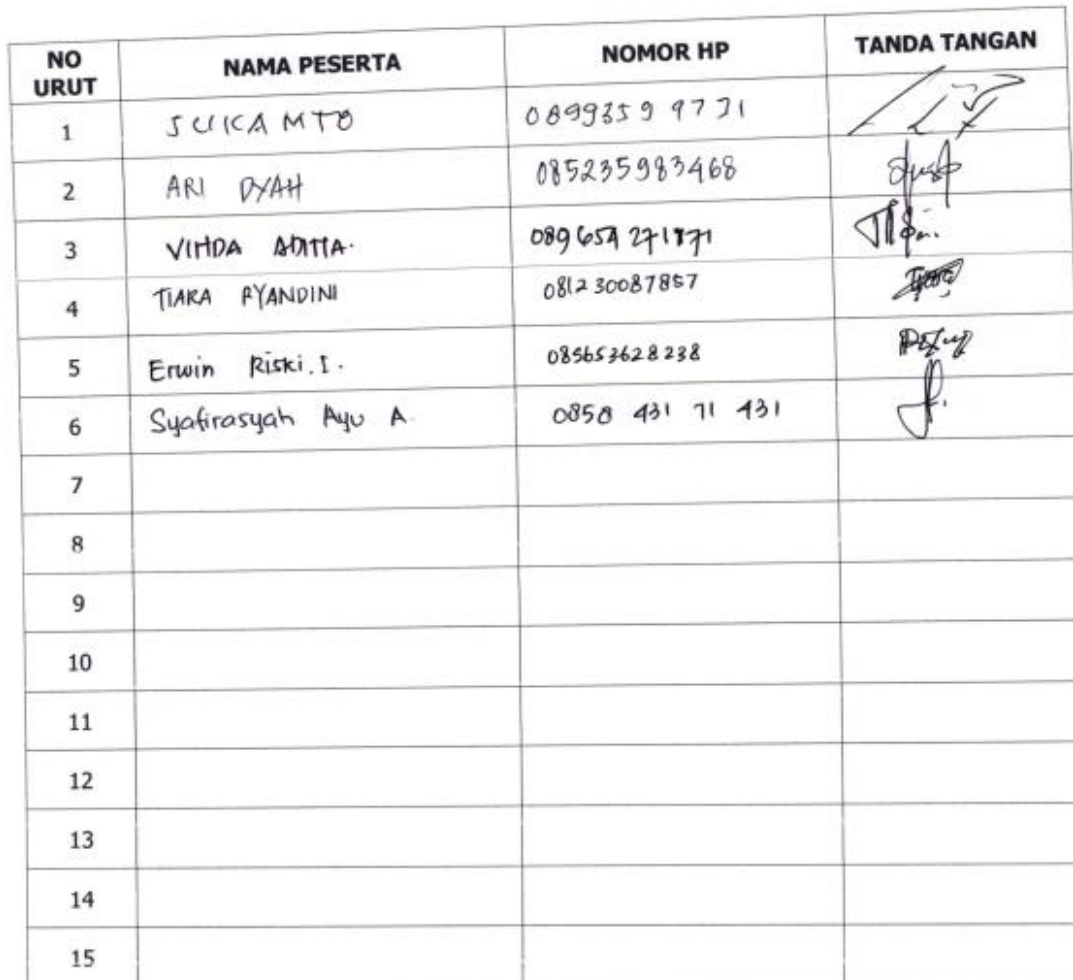 NO URUT NAMA PESERTA NOMOR HP TANDA TANGAN
1 SUKAMTO 08993599731
2 ARI DYAH 085235983468
3 VINDA ADITIA. 
4 TIARA RYANDINI 081230087857
5 Erwin Riski. I. 085653628238
6 Syafirasyah Ayu A. 0858 431 71 431
7
8
9
10
11
12
13
14
15